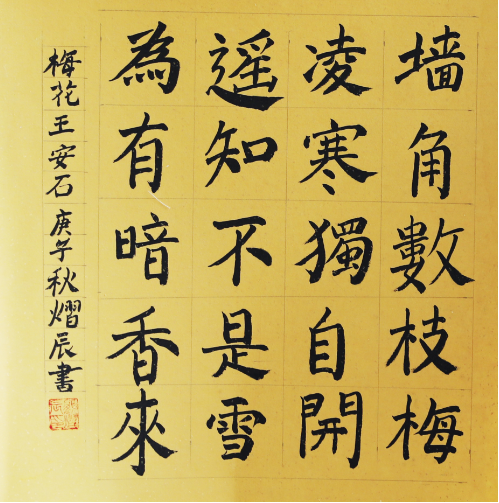 墙角數枝梅
凌寒獨自開
遥知不是雪
為有暗香來
梅花王安石庚子秋熠辰書